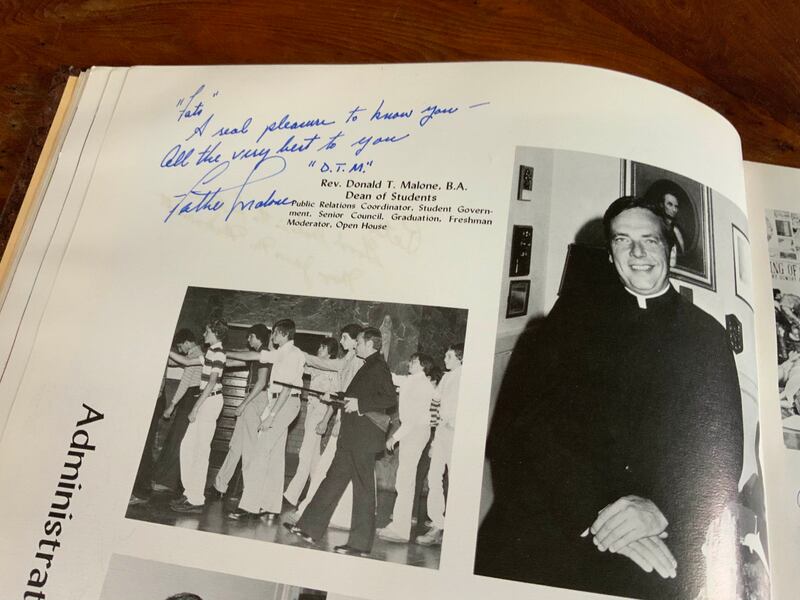 "Fats"
A real pleasure to know you —
All the very best to you
"D.T.M."
Father Malone
Rev. Donald T. Malone, B.A.
Dean of Students
Public Relations Coordinator, Student Govern-
ment, Senior Council, Graduation, Freshman
Moderator, Open House
Administrat
ING OF